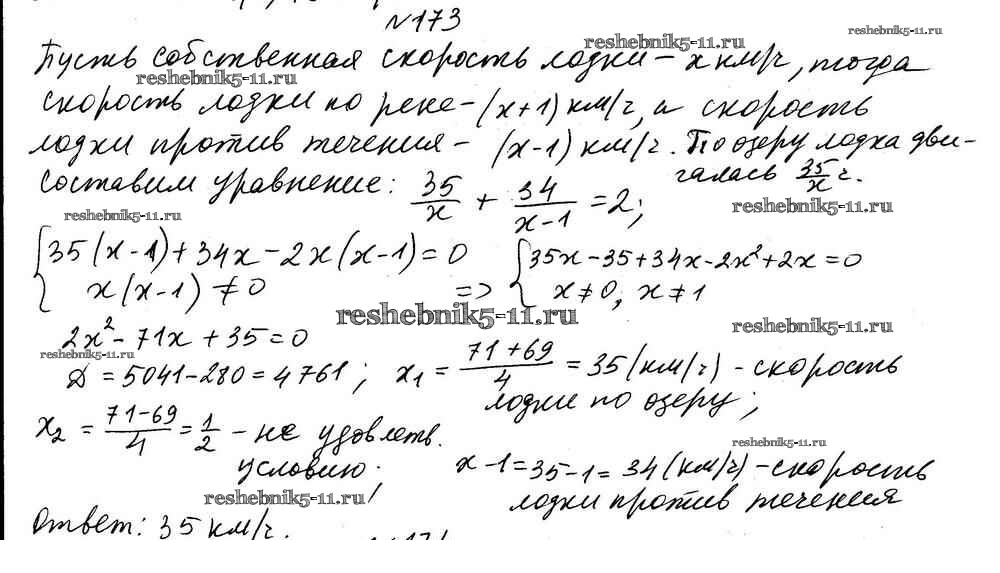 №173
reshebnik5-11.ru
Пусть собственная скорость лодки – x км/ч, тогда
reshebnik5-11.ru
reshebnik5-11.ru
скорость лодки по реке – (x+1) км/ч, а скорость
лодки против течения – (x-1) км/ч. По озеру лодка дви-
галась 35/x ч.
составим уравнение: 35/x + 34/(x-1) = 2;
reshebnik5-11.ru
reshebnik5-11.ru
{35(x-1)+34x-2x(x-1)=0
x(x-1)≠0
=> {35x-35+34x-2x²+2x=0
x≠0, x≠1
reshebnik5-11.ru
2x²-71x+35=0
reshebnik5-11.ru
reshebnik5-11.ru
D=5041-280=4761; x₁ = (71+69)/4 = 35 (км/ч) - скорость
лодки по озеру;
x₂ = (71-69)/4 = 1/2 – не удовлетв.
условию;
reshebnik5-11.ru
x-1=35-1=34 (км/ч) – скорость
лодки против течения
reshebnik5-11.ru
Ответ: 35 км/ч.